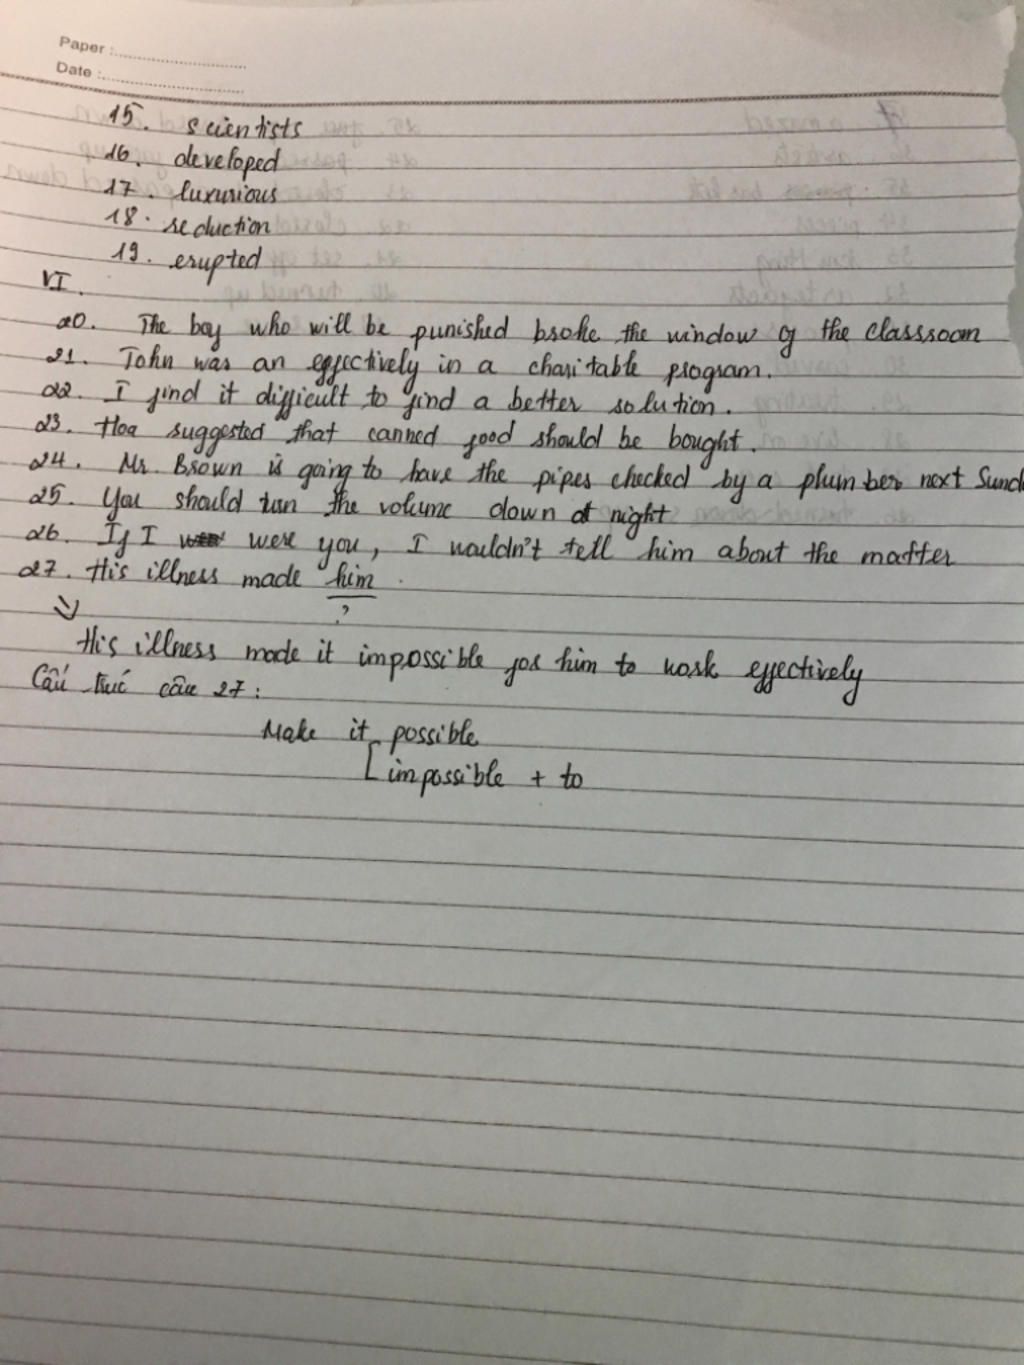 Paper :
Date :
15. scientists
16. developed
17. luxurious
18. reduction
19. erupted
VI.
20. The boy who will be punished broke the window of the classroom
21. John was an effectively in a charitable program.
22. I find it difficult to find a better solution.
23. Hoa suggested that canned food should be bought.
24. Mr. Brown is going to have the pipes checked by a plumber next Sund
25. You should turn the volume down at night
26. If I were you, I wouldn't tell him about the matter
27. His illness made him.
?
His illness made it impossible for him to work effectively
Cấu trúc câu 27:
Make it possible
impossible + to